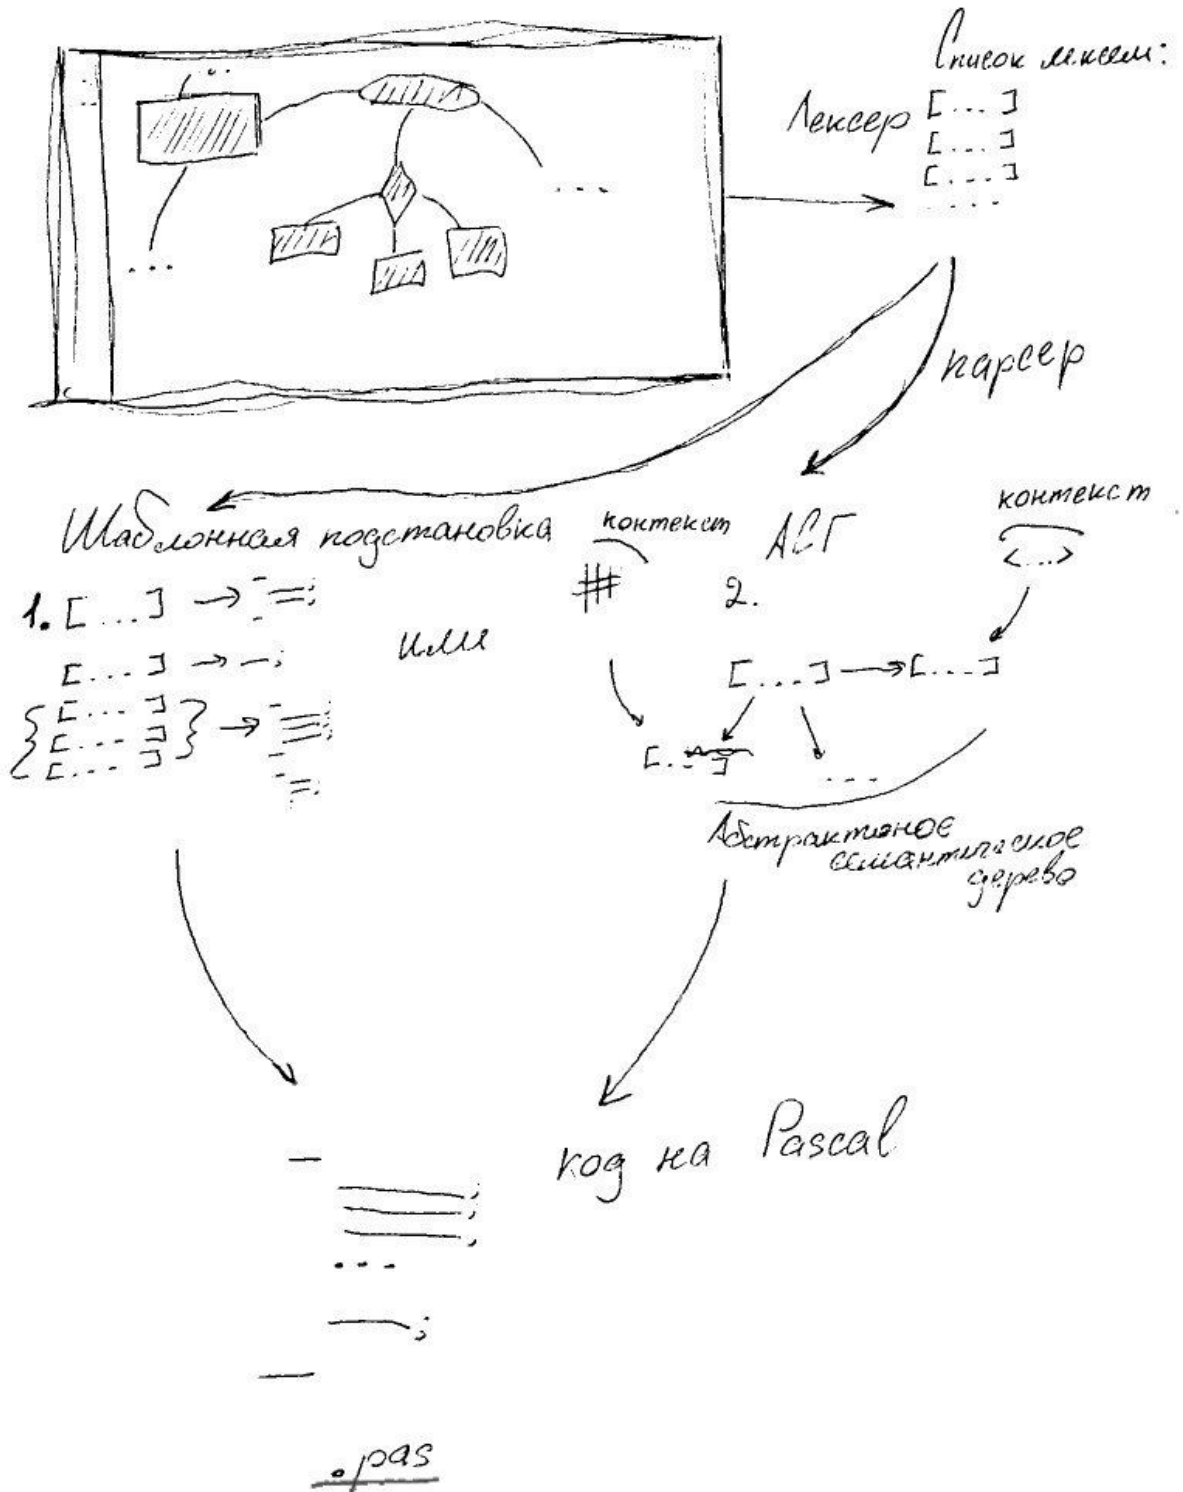 Список лексем:
Лексер [....]
[....]
[....]
.....
парсер
Шаблонная подстановка
контекст
АСГ
контекст
<...>
1. [....] → =;
[....] → —;
[....]
[....]
[....]
или
2.
[....] → [....]
[....]
...
Абстрактное
семантическое
дерево
код на Pascal
.pas